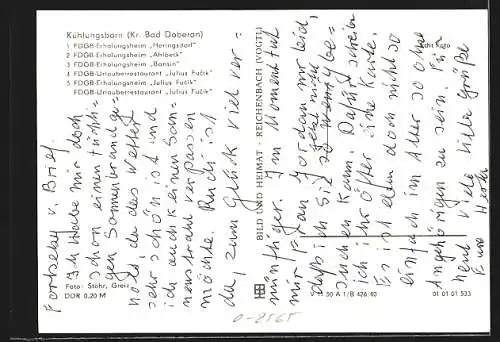 Kühlungsborn (Kr. Bad Doberan)
1 FDGB-Erholungsheim „Heringsdorf"
2 FDGB-Erholungsheim „Ahlbeck"
3 FDGB-Erholungsheim „Bansin"
4 FDGB-Urlauberrestaurant „Julius Fučik"
5 FDGB-Erholungsheim „Julius Fučik"
FDGB-Urlauberrestaurant „Julius Fučik"
Fortsetzg v. Brief
Ich habe mir doch
schon einen tüchti-
gen Sonnenbrand ge-
holt, da das Wetter
sehr schön ist und
ich auch keinen Son-
nenstrahl verpassen
möchte. Rudi ist
da, zum Glück viel ver-
nünftiger. Im Moment tut
mir Frau Jordan nur leid,
daß ich sie jetzt nicht be-
suchen kann. Dafür schreibe
ich ihr öfter eine Karte.
Es ist eben doch nicht so
einfach im Alter so ohne
Angehörigen zu sein. Für
heut viele liebe Grüße
Eure
Foto: Stöhr, Greiz
DDR 0,20 M
BILD UND HEIMAT · REICHENBACH (VOGTL)
V 11 50 A 1/B 426/40
01 01 01 533
0-8565